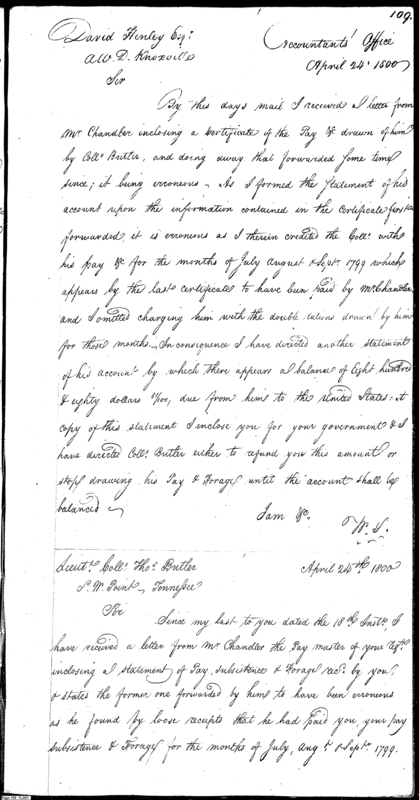 109.
David Henley Esqr.
A.W.D. Knoxville
Accountants' Office
April 24th 1800
Sir
By this days mail I received a letter from
Mr. Chandler inclosing a Certificate of the Pay &c drawn of him
by Collo. Butler, and doing away that forwarded some time
since; it being erroneous. As I formed the Statement of his
account upon the information contained in the Certificate first
forwarded it is erroneous as I therein credited the Collo. with
his pay &c for the months of July August & Septr. 1799 which
appears by the last certificate to have been paid by Mr. Chandler,
and I omitted charging him with the double rations drawn by him
for those months. In consequence I have directed another statement
of his account by which there appears a balance of Eight hundred
& eighty dollars /100, due from him to the United States. A
copy of this statement I inclose you for your government & I
have directed Collo. Butler either to refund you this amount or
stop drawing his Pay & Forage until the account shall be
balanced
I am &c.
W. S.
Lieutt. Collo. Thos. Butler
S. W. Point, Tennessee
April 24th 1800
Sir
Since my last to you dated the 18th Instt. I
have received a letter from Mr. Chandler the Pay master of your Regt.
inclosing a statement of Pay, subsistence & Forage recd. by you,
& states the former one forwarded by him to have been erroneous
as he found by loose receipts that he had paid you, your pay
subsistence & Forage for the months of July, Augt. & Septr. 1799.